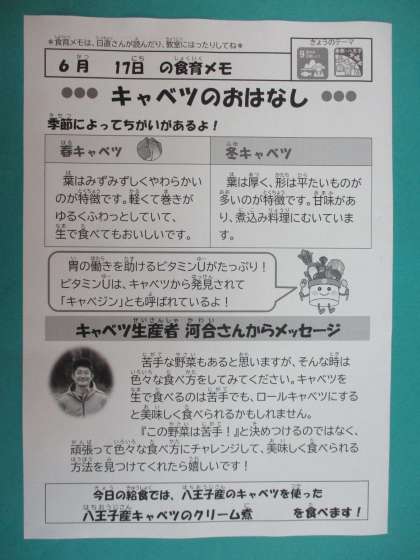 ＊食育メモは、日直さんが読んだり、教室にはったりしてね＊
きょうのテーマ
6月 17日 の食育メモ
●●● キャベツのおはなし ●●●
季節によってちがいがあるよ！
春キャベツ
葉はみずみずしくやわらかい
のが特徴です。軽くて巻きが
ゆるくふわっとしていて、
生で食べてもおいしいです。
冬キャベツ
葉は厚く、形は平たいものが
多いのが特徴です。甘味があ
り、煮込み料理にむいていま
す。
胃の働きを助けるビタミンUがたっぷり！
ビタミンUは、キャベツから発見されて
「キャベジン」とも呼ばれているよ！
キャベツ生産者 河合さんからメッセージ
苦手な野菜もあると思いますが、そんな時は
色々な食べ方をしてみてください。キャベツを
生で食べるのは苦手でも、ロールキャベツにする
と美味しく食べられるかもしれません。
『この野菜は苦手！』と決めつけるのではなく、
頑張って色々な食べ方にチャレンジして、美味しく食べられる
方法を見つけてくれたら嬉しいです！
今日の給食では、八王子産のキャベツを使った
八王子産キャベツのクリーム煮 を食べます！